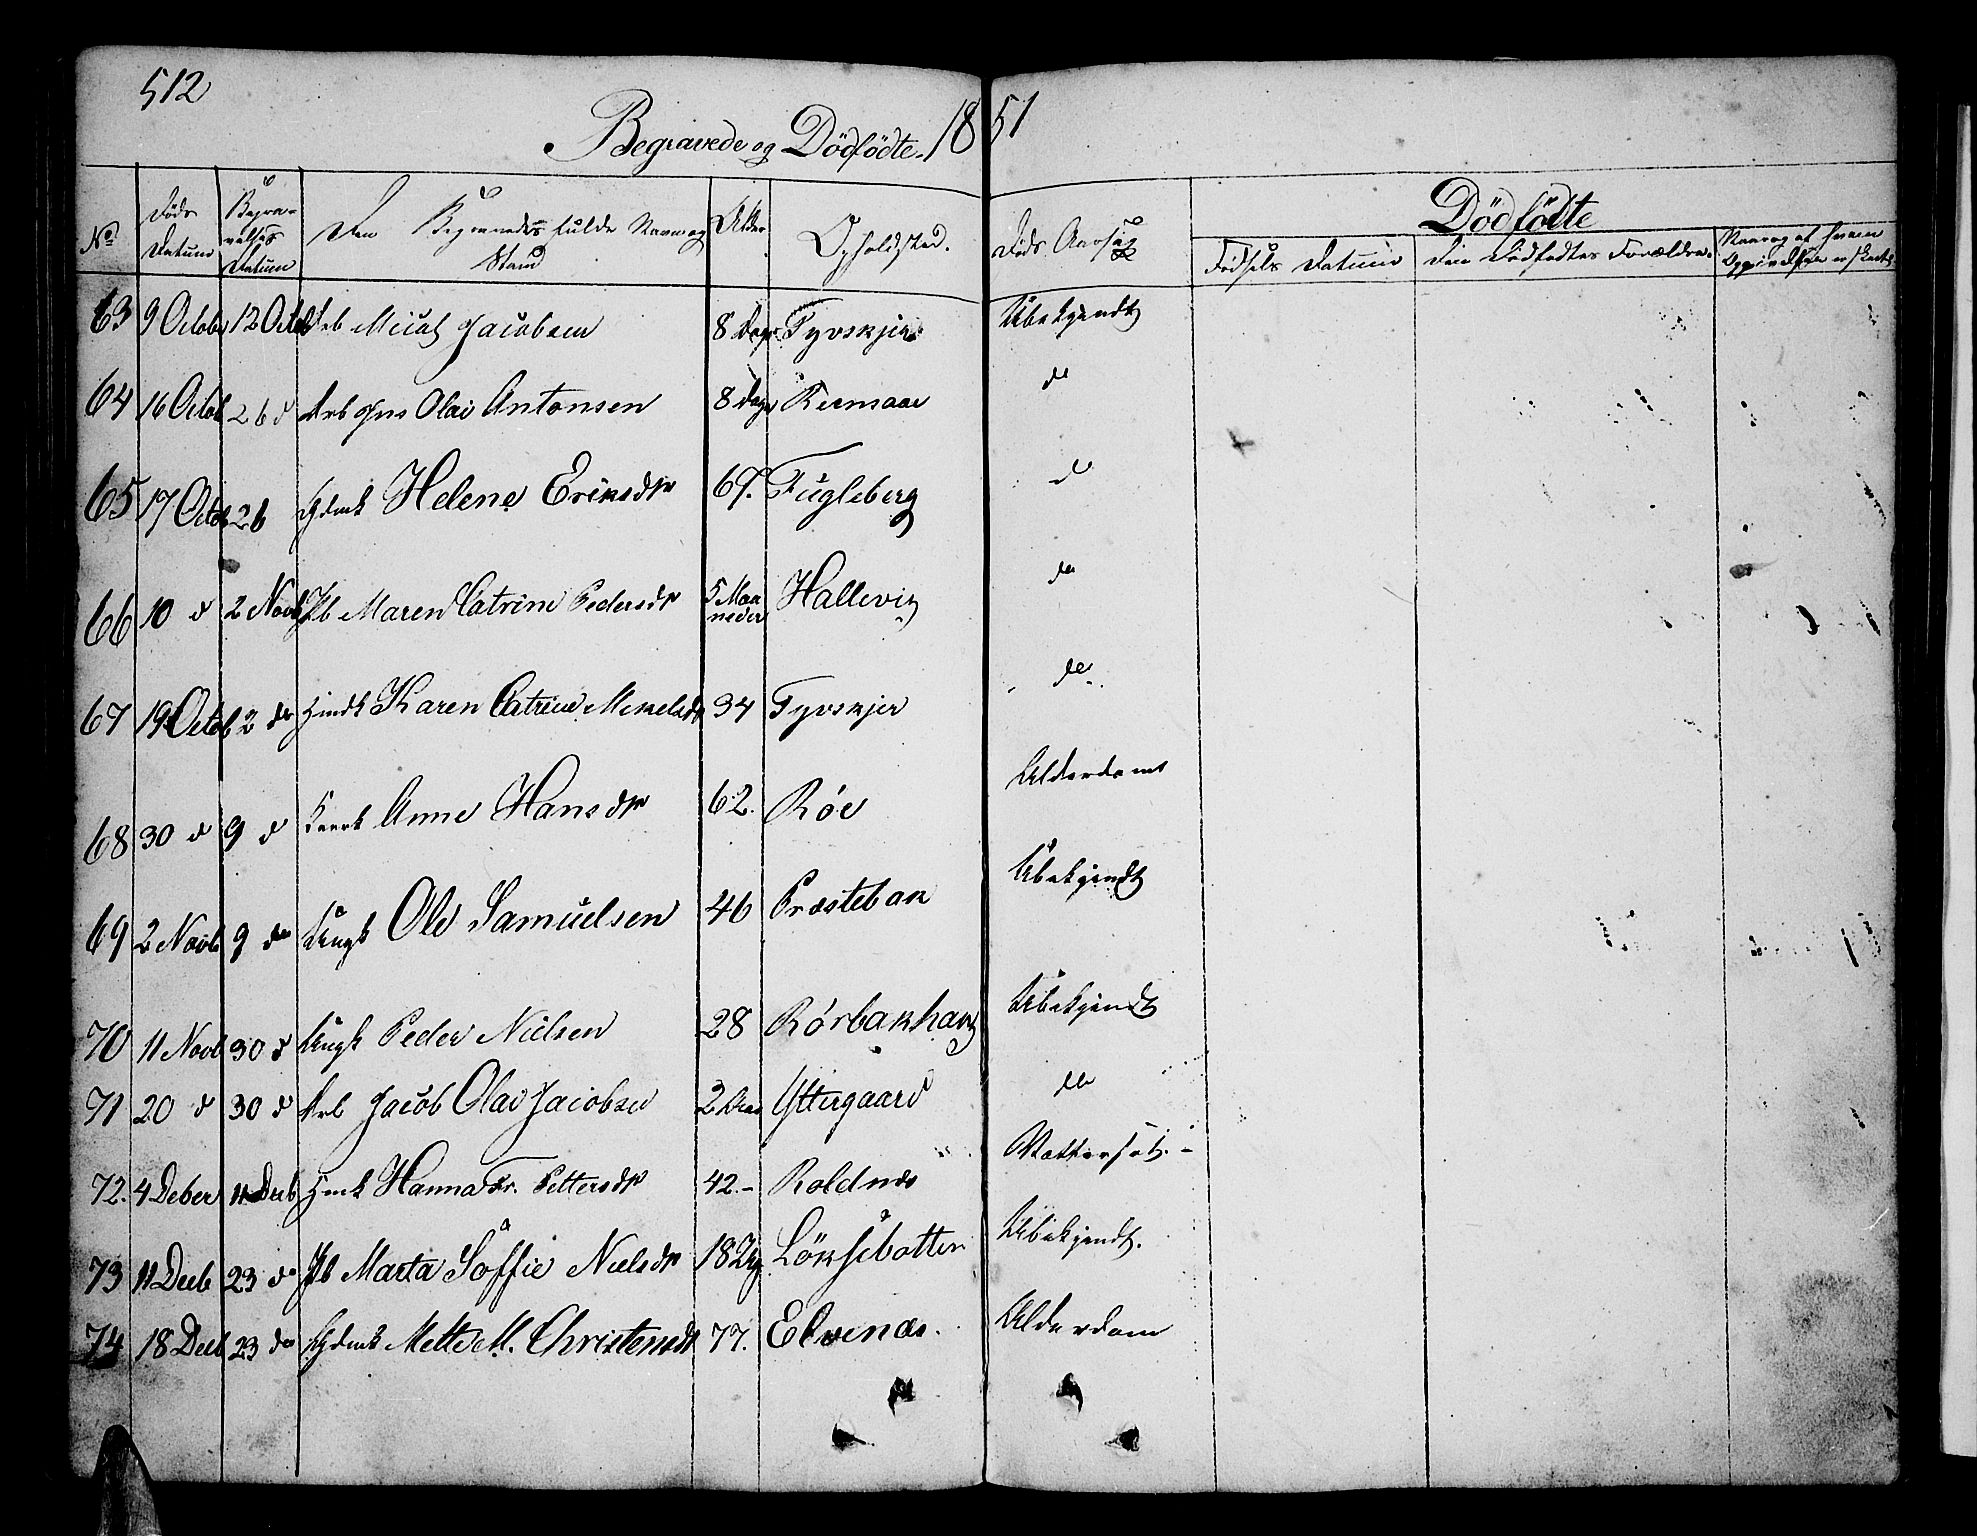 512
Begravede og Dödfödte 1851
No Döds Datum Begravelses Datum Den Begravedes fulde Navn og Stand Alder Opholdsted. Döds Aarsag
Dödfödte
Födsels Datum Den Dödfödtes Forældre Naar og af hvem
63 9 Octobr 12 Octob Arb Jacobsen 8 Dage Tyvskjer Ubekjendt
64 16 Octob 26 d Arb Jns Olai Antonsen 8 Dage do
65 17 Octob 26 Helene Eriksdtr 67. Fugleberg d
66 10 d 2 Novb Pb Maren Catrine Pedersdtr 5 Maaneder Hallevig do
67 19 Octob 2 do Karen Catrine Mikelsdtr 34 Tyvskjer do
68 30 d 9 d Anne Hansdtr 62. Röe Alderdoms
69 2 Novb 9 do Ungk Ole Samuelsen 46 Præstebak Ubekjendt
70 11 Novb 30 d Ungk Peder Nielsen 28 Rörbakhaug Ubekjendt
71 20 d 30 d Arb Jacob Olai Jacobsen 2 Aar Yttergaard do
72. 4 Deber 11 Decb Hanna Fr. Pettersdtr 42.- Roldnæs Vattersot.-
73 11 Decb 23 do Pb Marta Soffie Nielsdtr 18 Dg Löksebotten Ubekjendt.
74 18 Decb 23 do Mette M. Christensdt 77. Elvenæs. Alderdom